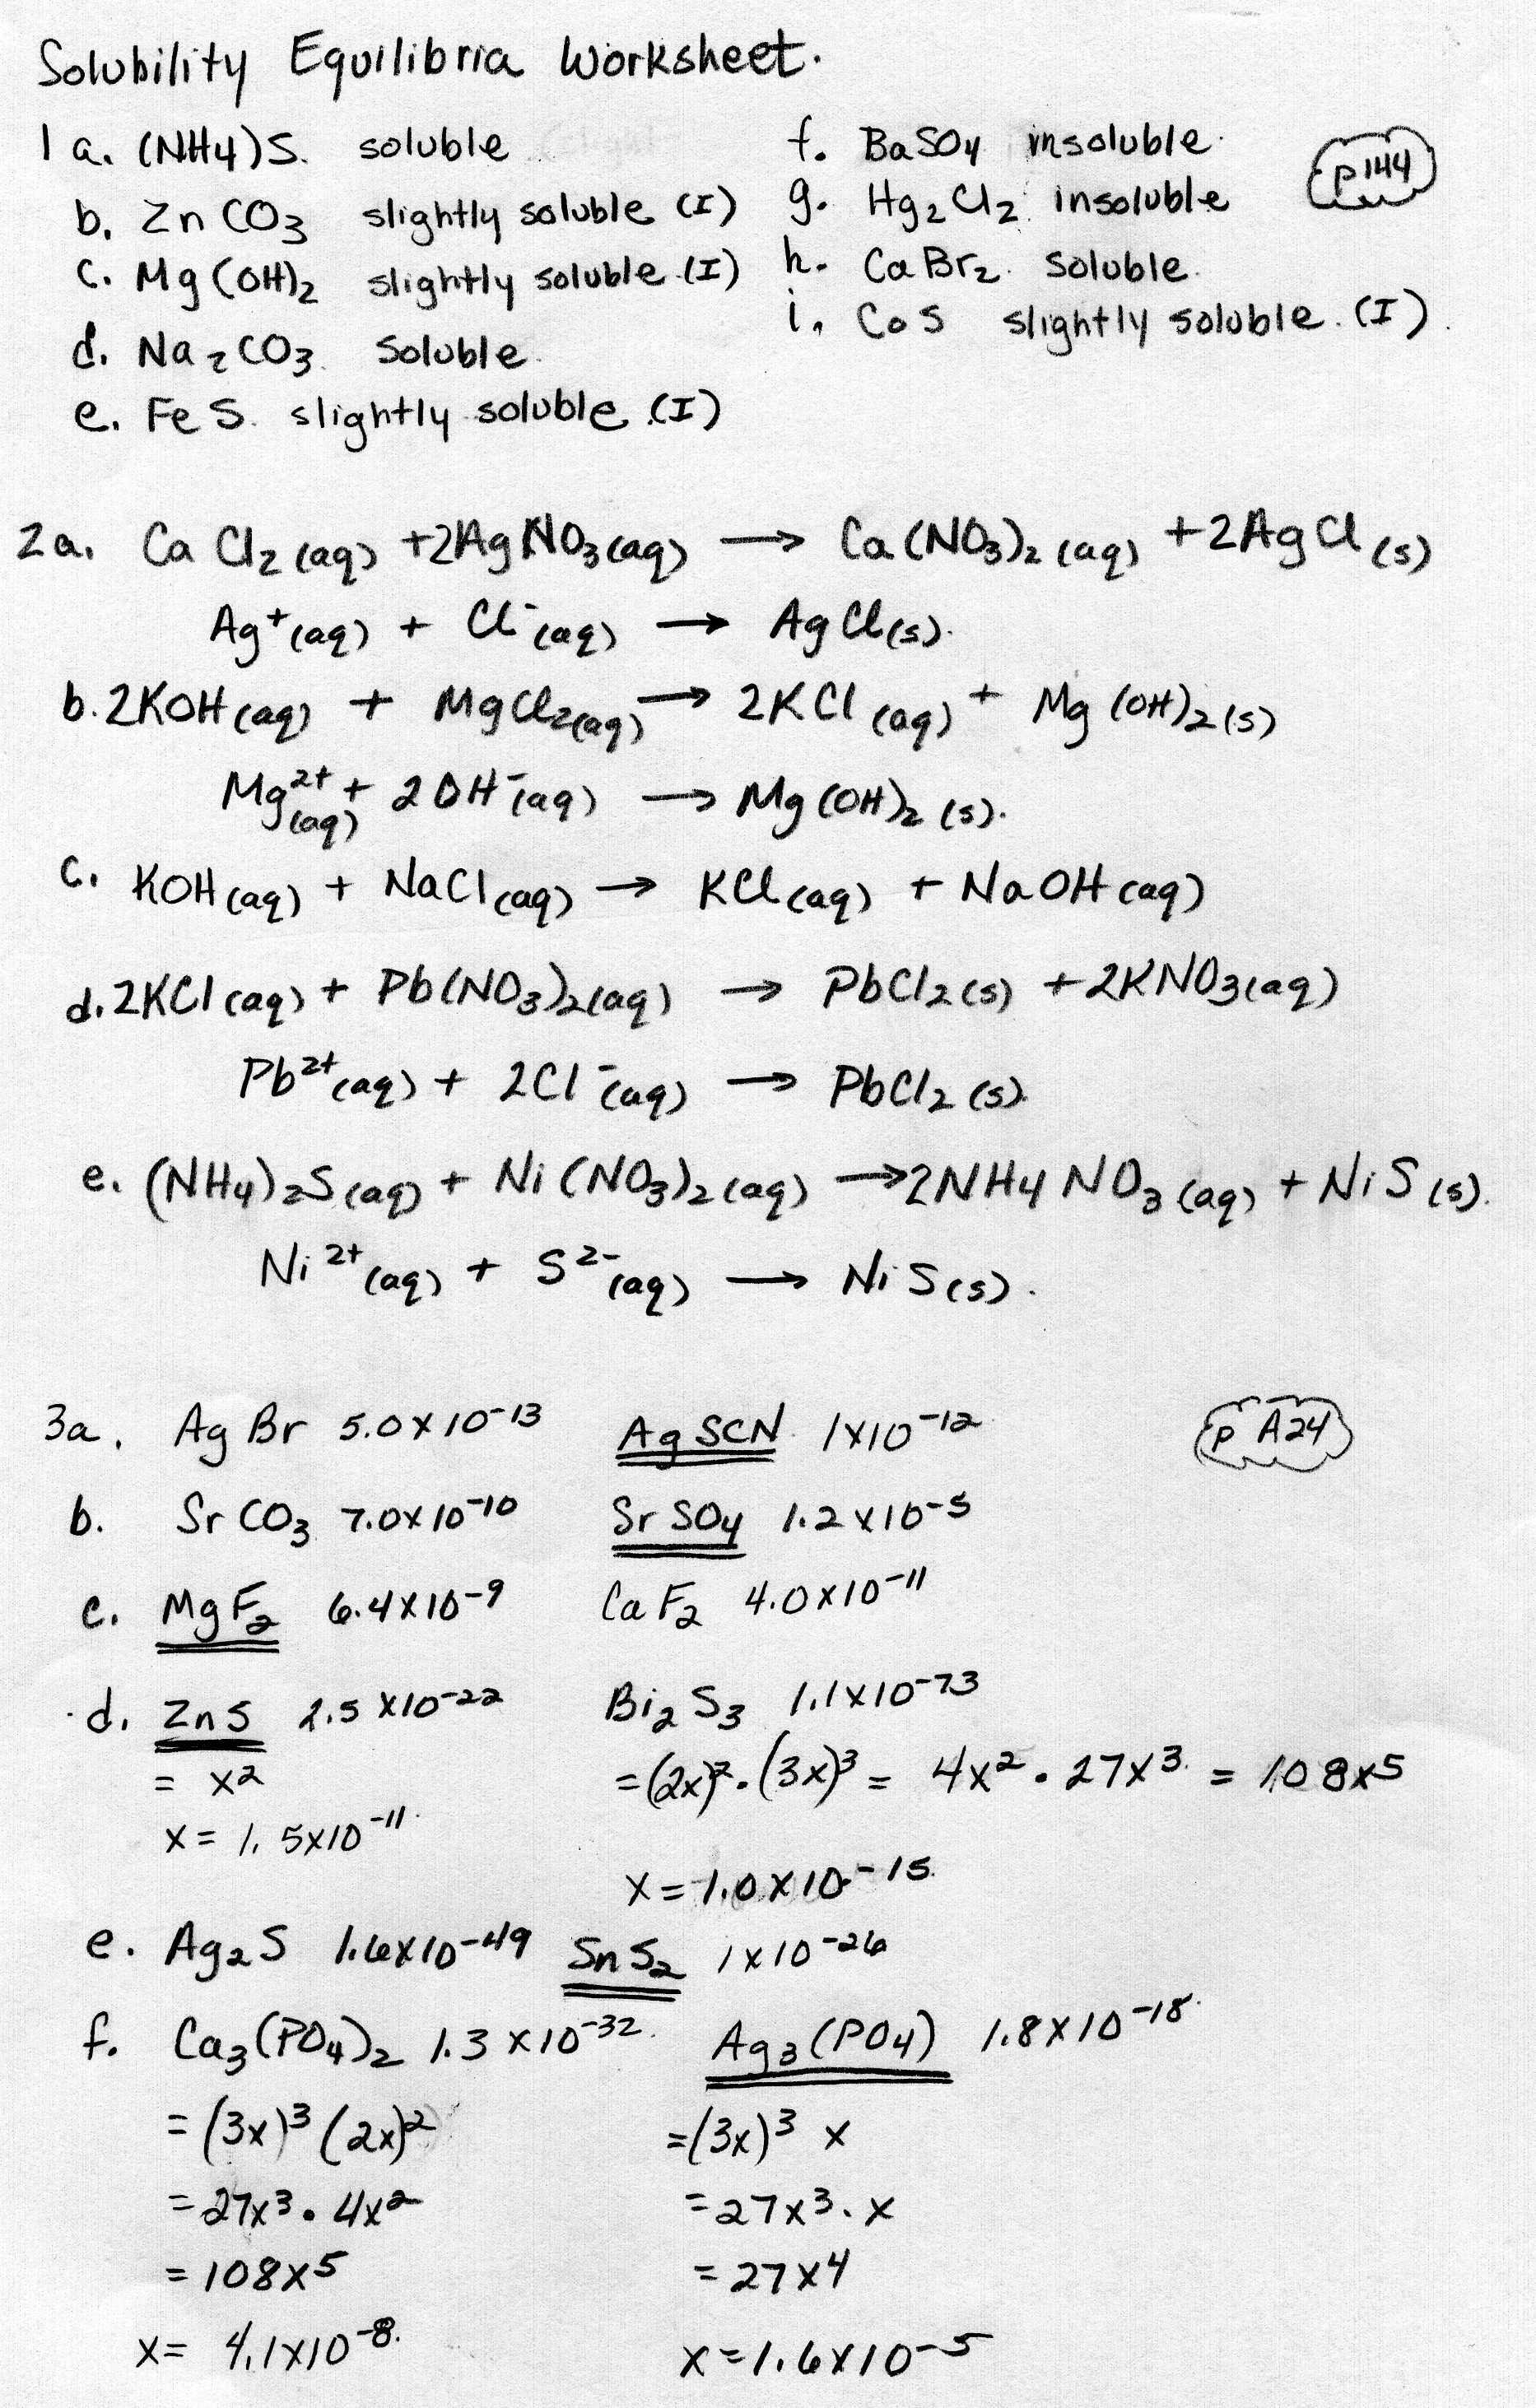 Solubility Equilibria Worksheet.
1 a. (NH4)S. soluble
b. ZnCO3 slightly soluble (I)
c. Mg(OH)2 slightly soluble (I)
d. Na2CO3. Soluble.
e. FeS. slightly soluble (I)
f. BaSO4 insoluble.
g. Hg2Cl2. insoluble
h. CaBr2. soluble.
i. CoS slightly soluble. (I).
p144
2a. CaCl2(aq) +2AgNO3(aq) → Ca(NO3)2(aq) +2AgCl(s)
Ag+(aq) + Cl-(aq) → AgCl(s).
b. 2KOH(aq) + MgCl2(aq) → 2KCl(aq) + Mg(OH)2(s)
Mg2+(aq) + 2OH-(aq) → Mg(OH)2(s).
c. KOH(aq) + NaCl(aq) → KCl(aq) + NaOH(aq)
d. 2KCl(aq) + Pb(NO3)2(aq) → PbCl2(s) +2KNO3(aq)
Pb2+(aq) + 2Cl-(aq) → PbCl2(s).
e. (NH4)2S(aq) + Ni(NO3)2(aq) → 2NH4NO3(aq) + NiS(s).
Ni2+(aq) + S2-(aq) → NiS(s).
3a. AgBr 5.0x10-13 AgSCN 1x10-12
p A24
b. SrCO3 7.0x10-10 SrSO4 1.2x10-5
c. MgF2 6.4x10-9 CaF2 4.0x10-11
d. ZnS 2.5x10-22 Bi2S3 1.1x10-73
= x2 =(2x)2.(3x)3 = 4x2 . 27x3. = 108x5
x = 1.5x10-11.
x = 1.0x10-15.
e. Ag2S 1.6x10-49 SnS2 1x10-26
f. Ca3(PO4)2 1.3x10-32. Ag3(PO4) 1.8x10-18.
= (3x)3(2x)2 =(3x)3 x
= 27x3 . 4x2 = 27x3.x
= 108x5 = 27x4
x = 4.1x10-8. x = 1.6x10-5